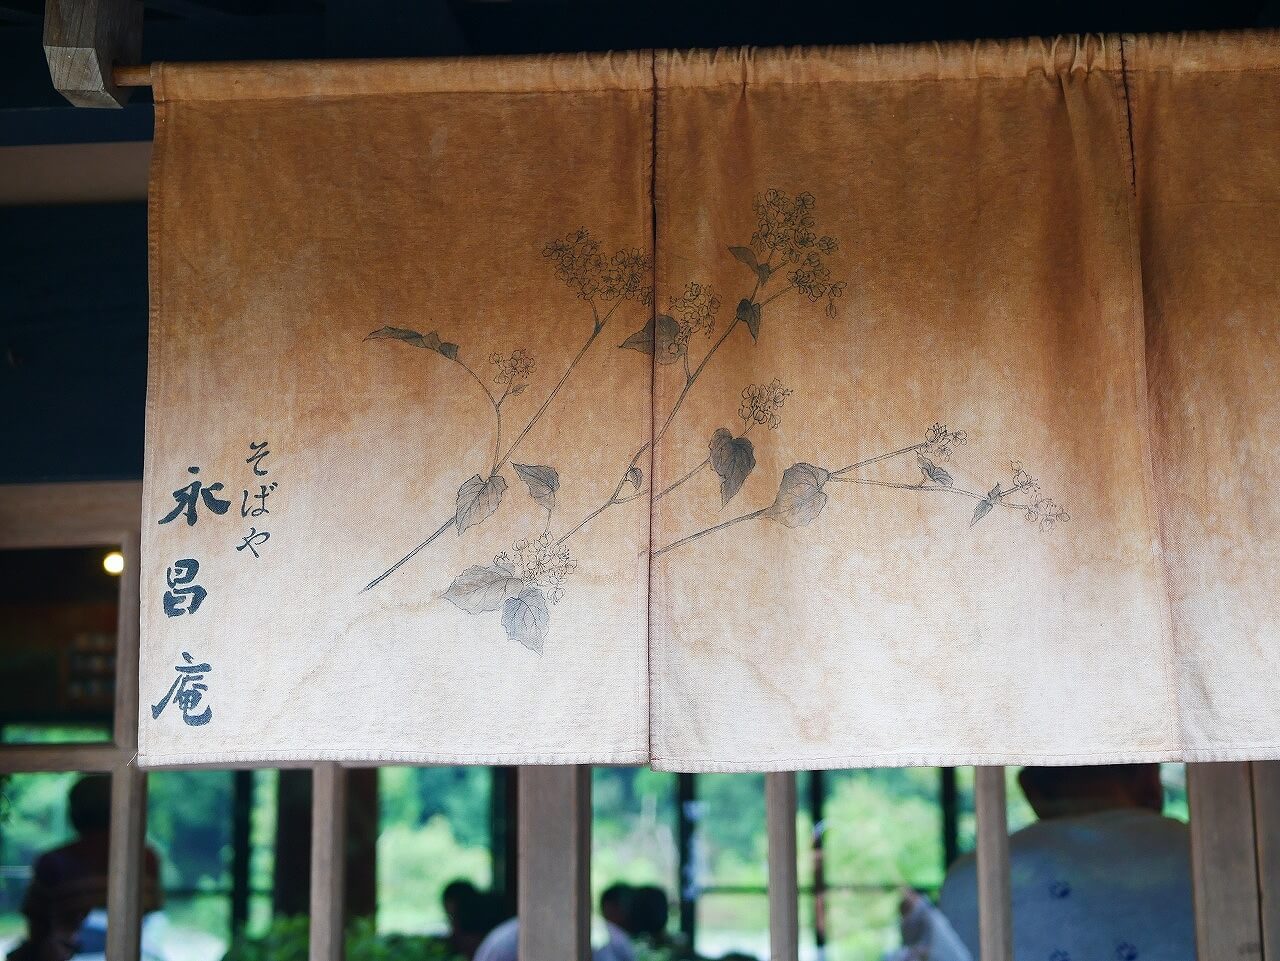 そばや
永昌庵